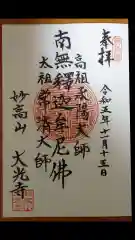 奉拝
令和五年十二月十五日
南無釋迦牟尼佛
高祖承陽大師
太祖常済大師
妙高山
大光寺